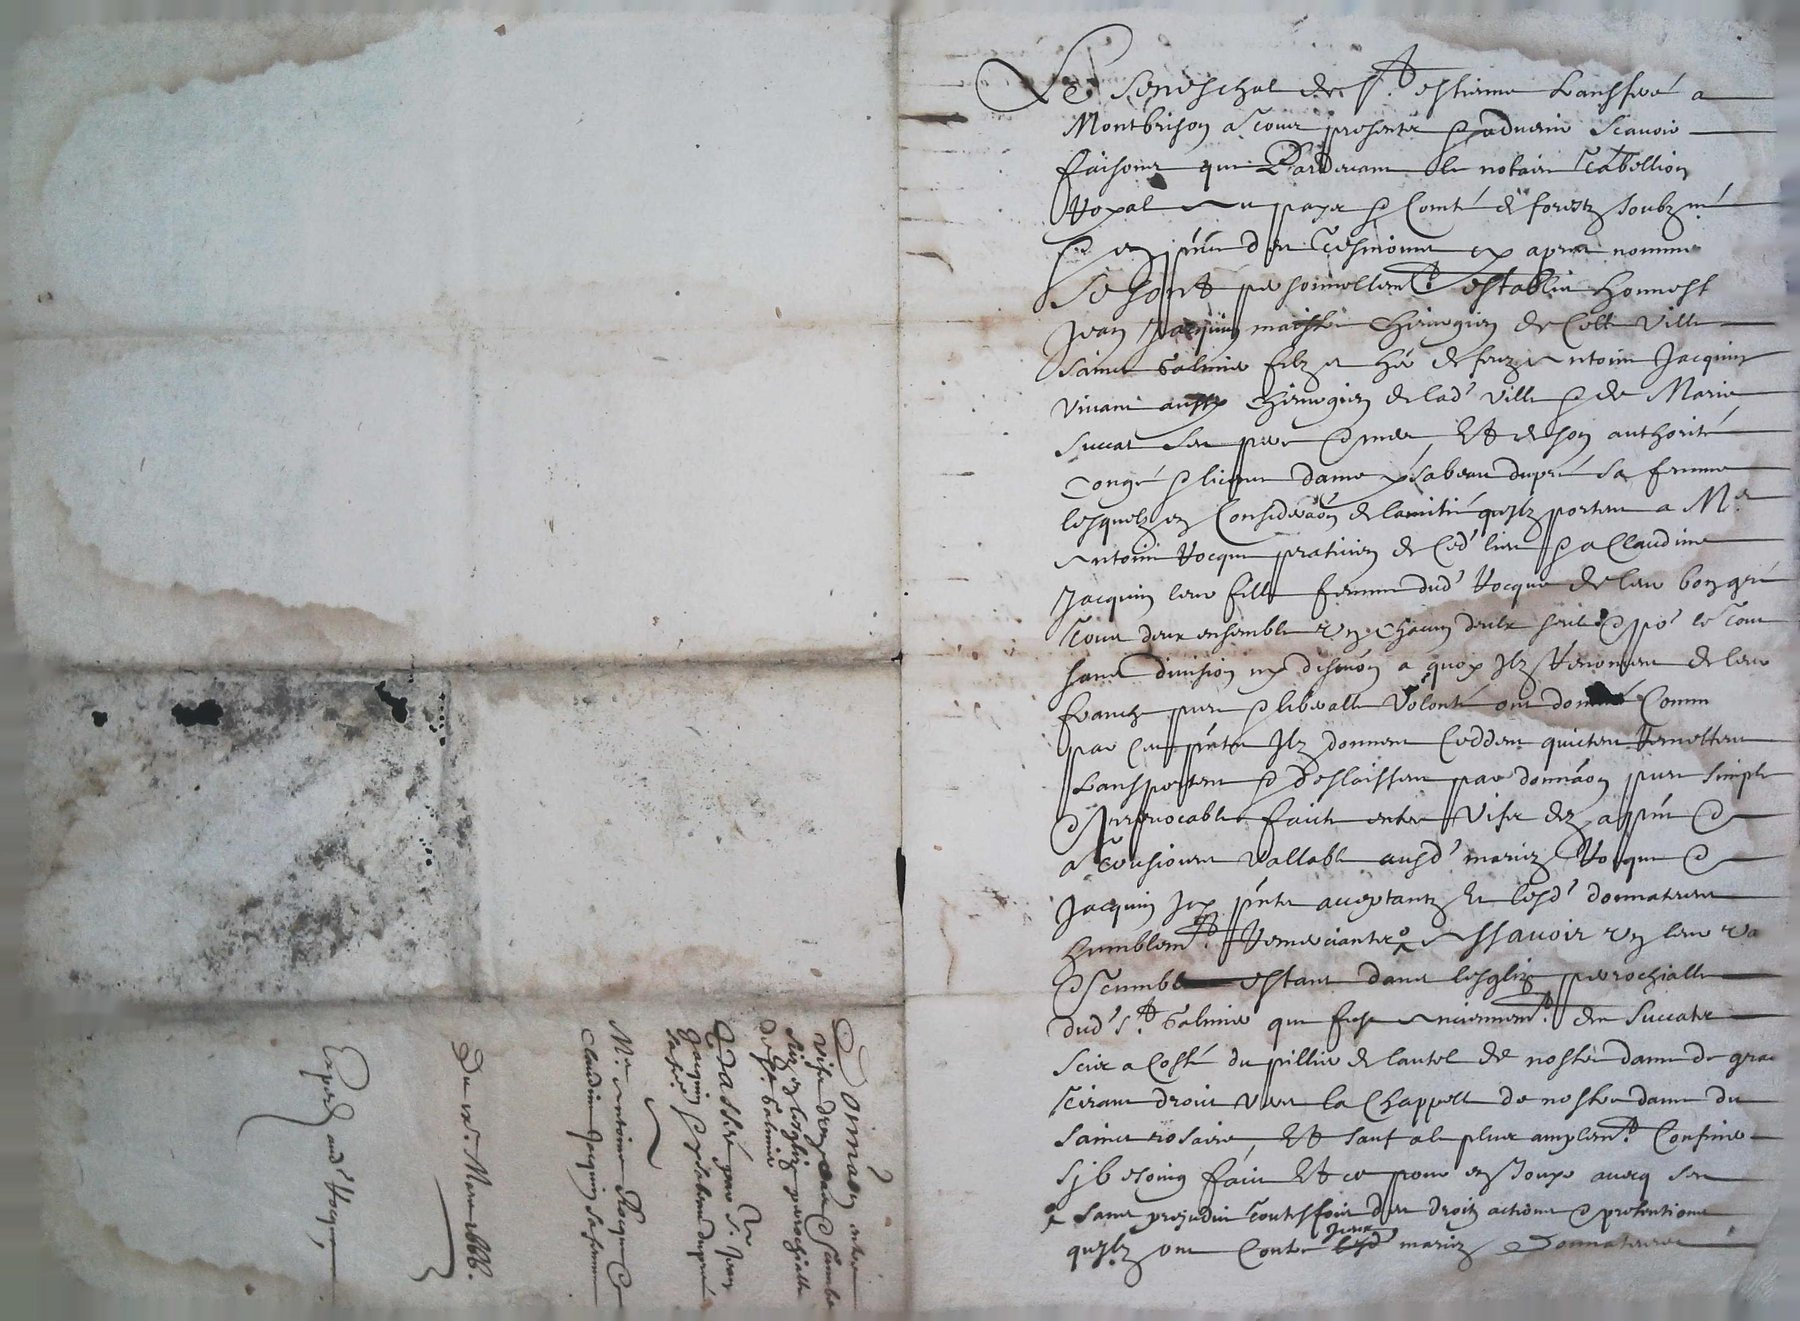 Le Seneschal de st estienne transferé a
Montbrison a tous presents & advenir scavoir
faisons que Pardevant le notaire tabellion
Royal au pays & Comté de forestz soubzné
& en pñce des tesmoins cy apres nommes
Se sont personnellemt establis honnest
Jean Jacquin maistre Chirurgien de Cette Ville
Sainct Galmier filz et hér de feuz Antoine Jacquin
Vivant aussy Chirurgien de lad' Ville & de Marie
Succat ses pere & mere Et de son authorité
Congé & licence dame ysabeau dupré sa femme
lesquelz en Consideraõn de lamitié quilz portent a Me
Antoine Rocque praticien de Ced' lieu & a Claudine
Jacquin leur fille femme dud' Rocque de leur bon gré
tous deux ensemble & un chacun deulx seul & po' le tout
sans division ny discuõn a quoy Ilz Renoncent de leur
franche pure & liberalle Volonté ont donné Comm
par Ces pñtes Ilz donnent Ceddent quictent Remettent
transportent & deslaissent par donnãon pure simple
& Irrevocable faicte entre Vifz dez a pñt &
a tousjours vallable ausd' mariez Rocque &
Jacquin Icy pñtz acceptantz Et lesd' donnateurs
humblemt Remerciantz Assavoir un leur va
& tumbe estant dans lesglize parrochialle
dud' st Galmier qui fust anciennemt des Succatz
scize a Costé du pillier de lautel de nostre dame de grac
tirant droict vers la Chappelle de nostre dame du
sainct rosaire, Et sauf a le plus amplemt Confiner
sy besoing faict Et ce pour en Jouyr avecq ses
sans prejudice toutesfois des droitz actions & pretentions
quilz ont Contre Iceux lesd' mariez Donnateurs
Donnãon entre
vifz d'un vas & tumbe
size en lesglize parrochialle
de st Galmier
passée par sr Jean
Jacquin & ysabeau dupré
A
Me Antoine Rocque &
Claudine Jacquin sa femme
Du Mars 1666.
Exped' aud' Rocque